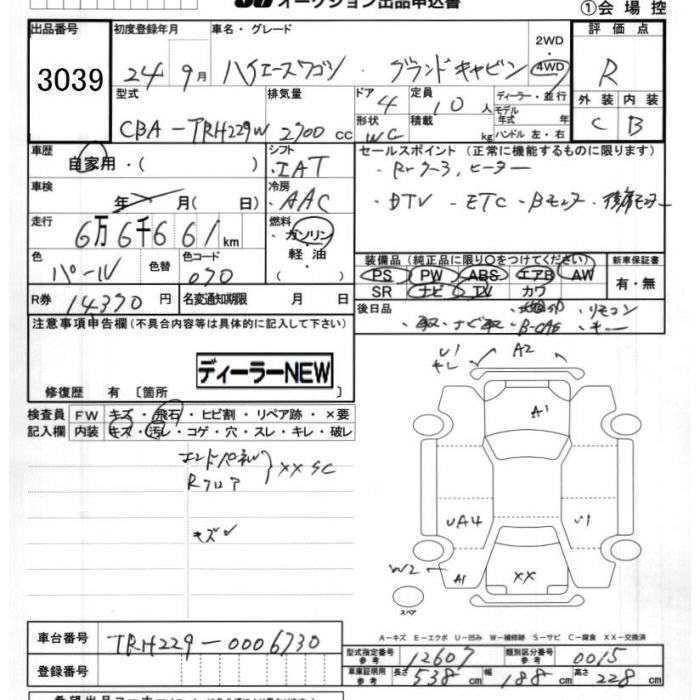 オークション出品申込書
①会場控
出品番号 初度登録年月 車名・グレード 2WD・4WD 評価点
3039 24年9月 ハイエースワゴン・グランドキャビン R
型式 排気量 ドア 定員 ディーラー・並行 外装 内装
CBA-TRH229W 2700cc 4 10人 モデル年式 年 C B
形状 積載 kg ハンドル 左・右
WG
車歴 シフト セールスポイント(正常に機能するものに限ります)
自家用・( ) ・IAT ・Rrクーラー、ヒーター
車検 冷房 ・DTV ・ETC ・Bモニター
年 月(日) ・AAC
走行 燃料
6万6千661km ・ガソリン
色 色替 色コード ・軽油 装備品(純正品に限り○をつけてください) 新車保証書
パール 070 ・( ) PS PW ABS エアB AW 有・無
R券 名変通知期限 SR ナビ TV カワ
14370円 月 日 後日品
・リモコン
・キー
注意事項申告欄(不具合内容等は具体的に記入して下さい)
ディーラーNEW
修復歴 有 [箇所
検査員 FW キズ・飛石・ヒビ割・リペア跡・×要
記入欄 内装 キズ・汚レ・コゲ・穴・スレ・キレ・破レ
エンドパネル
Rフロア
XX SC
キズ
U1
キレ
A2
A1
UA4
U1
W2
A1
XX
スペア
A-キズ E-エクボ U-凹み W-補修跡 S-サビ C-腐食 XX-交換済
車台番号 TRH229-0006730
型式指定番号 参考 12607 類別区分番号 参考 0015
登録番号 車庫証明用 参考 長さ 538cm 幅 188cm 高さ 228cm